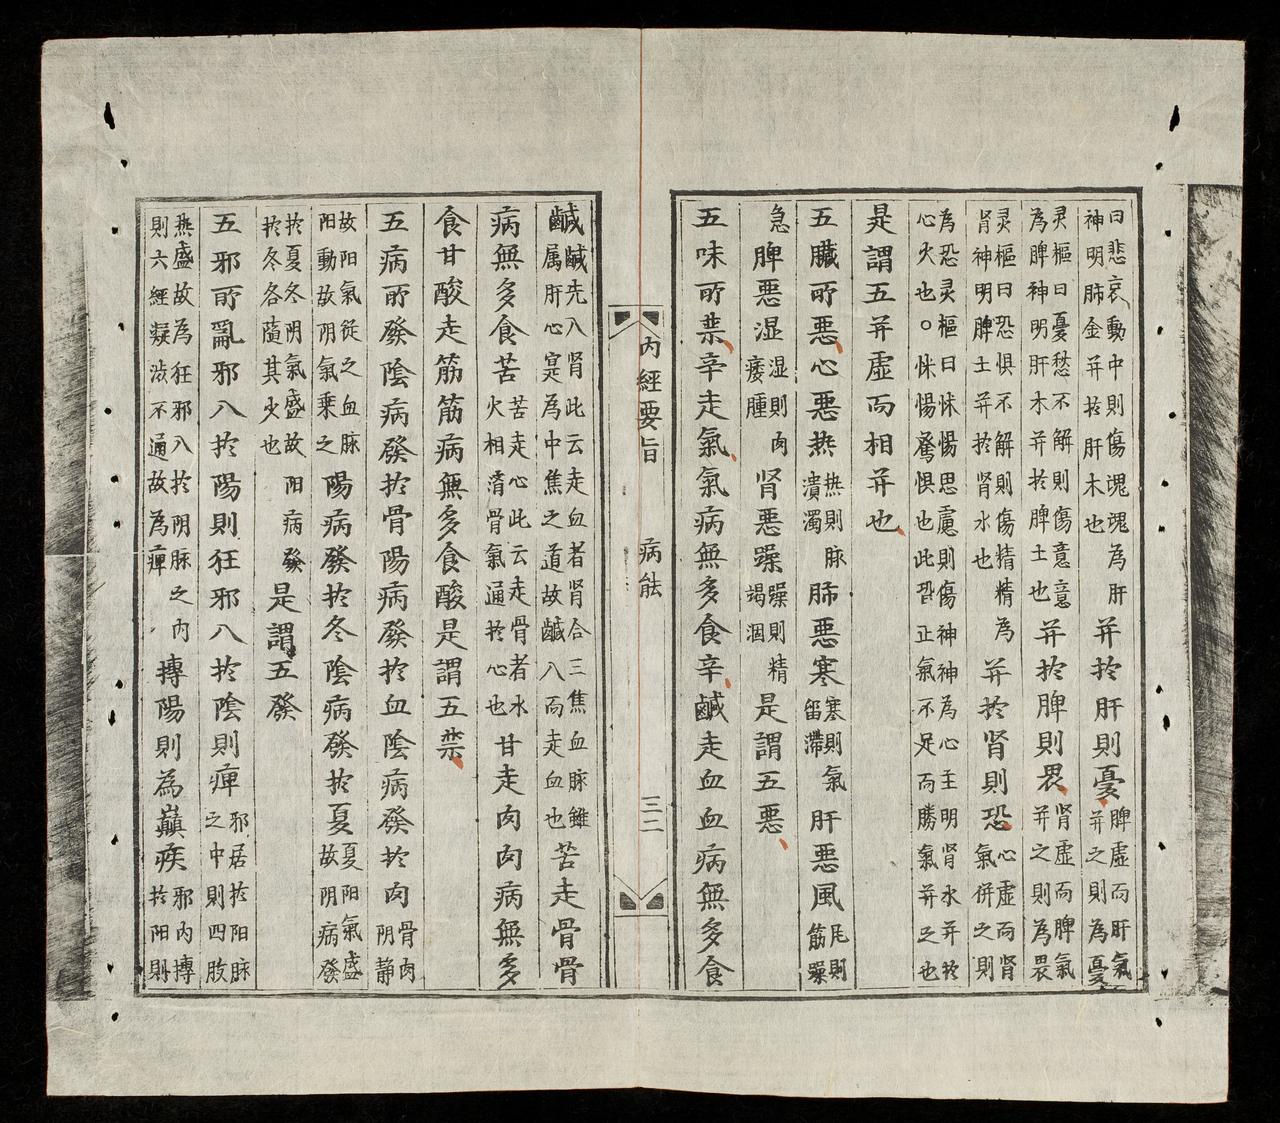 曰悲哀動中則傷魂魂為肝神明肺金并扵肝木也并扵肝則憂脾虛而肝氣并之則為憂
灵樞曰憂愁不解則傷意意為脾神明肝木并扵脾土也并扵脾則畏肾虛而脾氣并之則為畏
灵樞曰恐惧不解則傷精精為肾神明脾土并扵肾水也并扵肾則恐心虛而肾氣併之則
為恐灵樞曰怵惕思慮則傷神神為心主明肾水并扵心火也。怵惕驚惧也此皆正氣不足而勝氣并之也
是謂五并虛而相并也
五臟所惡心惡热热則脉潰濁肺惡寒寒則氣留滯肝惡風风則筋躁
急脾惡湿湿則肉痿腫肾惡躁躁則精竭涸是謂五惡
五味所禁辛走氣氣病無多食辛鹹走血血病無多食
内經要旨 病能 三二
鹹鹹先入肾此云走血者肾合三焦血脉雖属肝心寔為中焦之道故鹹入而走血也苦走骨骨
病無多食苦苦走心此云走骨者水火相濟骨氣通扵心也甘走肉肉病無多
食甘酸走筋筋病無多食酸是謂五禁
五病所發陰病發扵骨陽病發扵血陰病發扵肉骨肉阴静
故阳氣從之血脉阳動故阴氣乗之陽病發扵冬陰病發扵夏夏阳氣盛故阴病發
扵夏冬阴氣盛故阳病發扵冬各隨其火也是謂五發
五邪所亂邪入扵陽則狂邪入扵陰則痺邪居扵阳脉之中則四肢
热盛故為狂邪入扵阴脉之内則六經凝澁不通故為痺搏陽則為巔疾邪内搏扵阳則